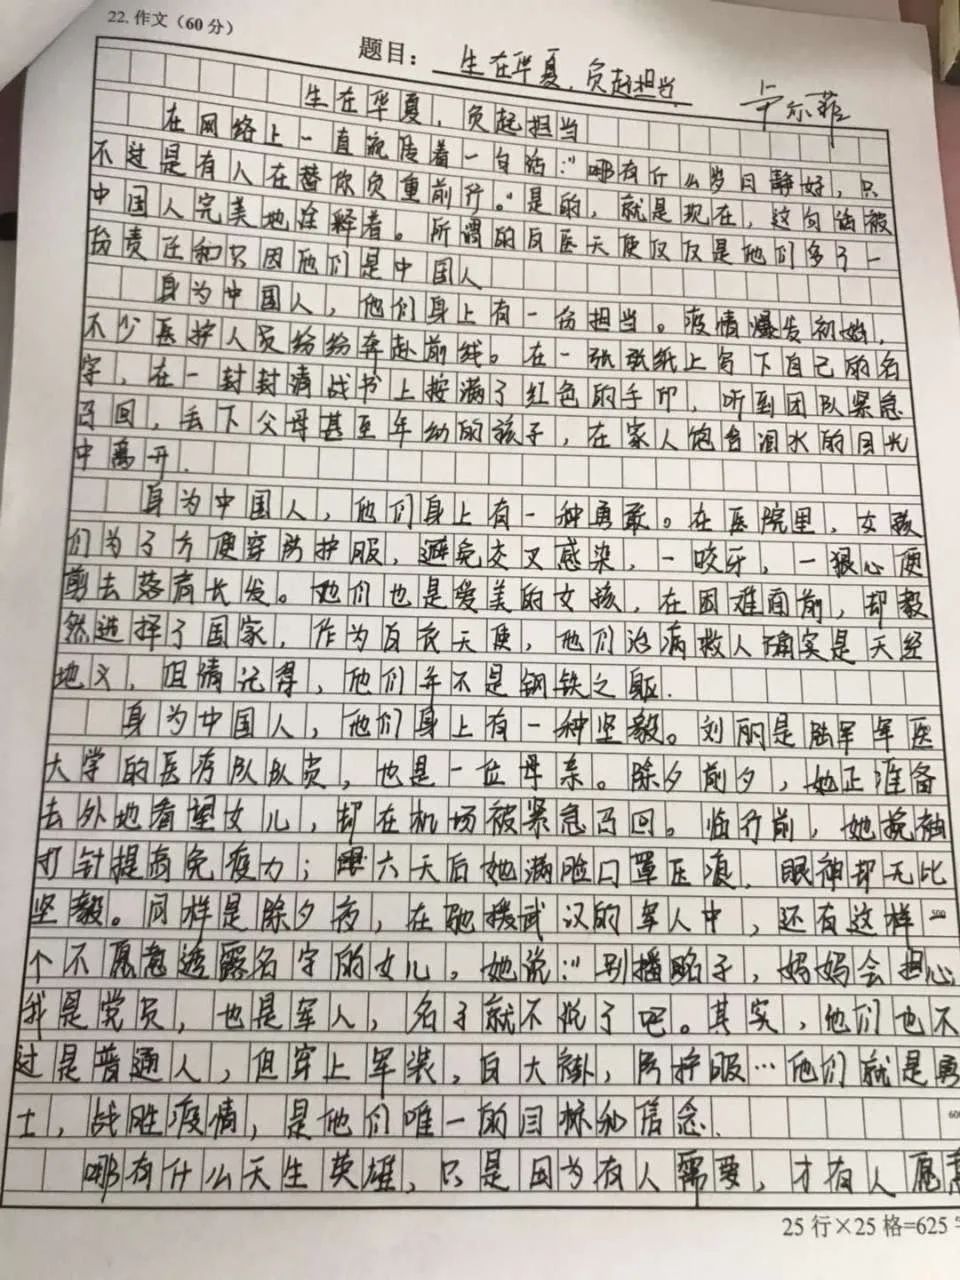 22. 作文（60 分）
题目： 生在华夏，负起担当
卢尔菲
生在华夏，负起担当
在网络上一直流传着一句话：“哪有什么岁月静好，只
不过是有人在替你负重前行。”是的，就是现在，这句话被
中国人完美地诠释着。所谓的白衣天使仅仅是他们多了一
份责任和只因他们是中国人
身为中国人，他们身上有一份担当。疫情爆发初始，
不少医护人员纷纷奔赴前线。在一张张纸上写下自己的名
字，在一封封请战书上按满了红色的手印，听到团队紧急
召回，丢下父母甚至年幼的孩子，在家人饱含泪水的目光
中离开．
身为中国人，他们身上有一种勇敢。在医院里，女孩
们为了方便穿防护服，避免交叉感染，一咬牙，一狠心便
剪去落肩长发。她们也是爱美的女孩，在困难面前，却毅
然选择了国家，作为白衣天使，他们治病救人确实是天经
地义，但请记得，他们并不是钢铁之躯．
身为中国人，他们身上有一种坚毅。刘丽是陆军军医
大学的医疗队队员，也是一位母亲。除夕前夕，她正准备
去外地看望女儿，却在机场被紧急召回。临行前，她挽袖
打针提高免疫力；六天后她满脸口罩压痕，眼神却无比
坚毅。同样是除夕夜，在驰援武汉的军人中，还有这样一
500
个不愿意透露名字的女儿，她说：“别播名子，妈妈会担心
我是党员，也是军人，名子就不说了吧。其实，他们也不
过是普通人，但穿上军装，白大褂，防护服…他们就是勇
士，战胜疫情，是他们唯一的目标和信念．
600
哪有什么天生英雄，只是因为有人需要，才有人愿意
25 行×25 格=625 字